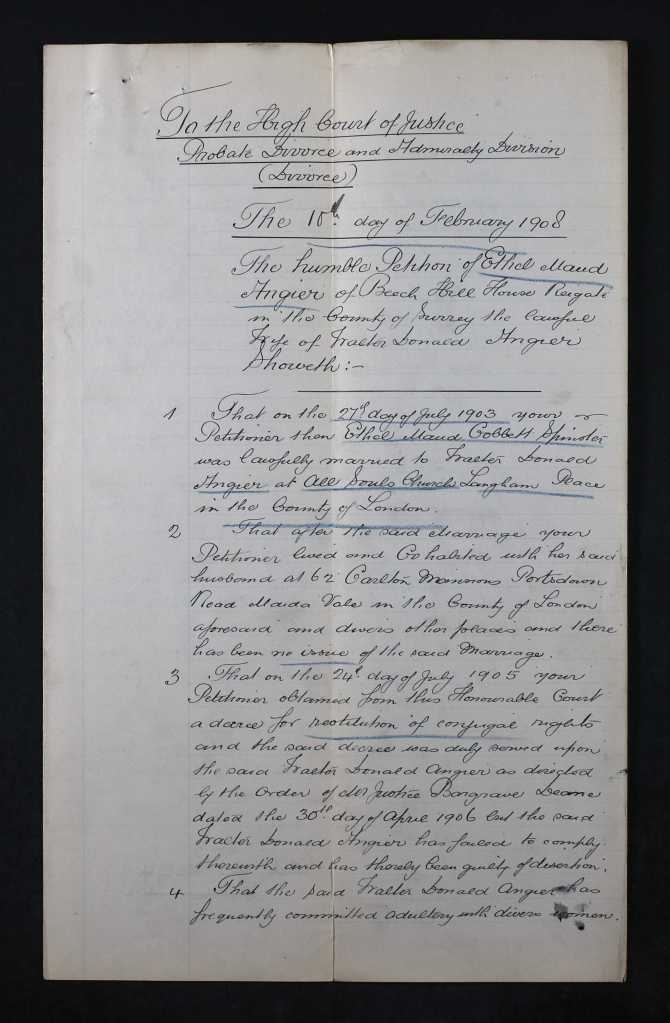 To the High Court of Justice
Probate Divorce and Admiralty Division
(Divorce)
The 10th day of February 1908
The humble Petition of Ethel Maud
Angier of Beech Hill House Reigate
in the County of Surrey the lawful
Wife of Walter Donald Angier
Showeth:-
1 That on the 27th day of July 1903 your
Petitioner then Ethel Maud Cobbett Spinster
was lawfully married to Walter Donald
Angier at All Souls Church Langham Place
in the County of London.
2 That after the said Marriage your
Petitioner lived and Cohabited with her said
husband at 62 Carlton Mansions Portsdown
Road Maida Vale in the County of London
aforesaid and divers other places and there
has been no issue of the said Marriage.
3 That on the 24th day of July 1905 your
Petitioner obtained from this Honourable Court
a decree for restitution of conjugal rights
and the said decree was duly served upon
the said Walter Donald Angier as directed
by the Order of Mr Justice Bargrave Deane
dated the 30th day of April 1906 but the said
Walter Donald Angier has failed to comply
therewith and has thereby been guilty of desertion.
4 That the said Walter Donald Angier has
frequently committed adultery with divers women.